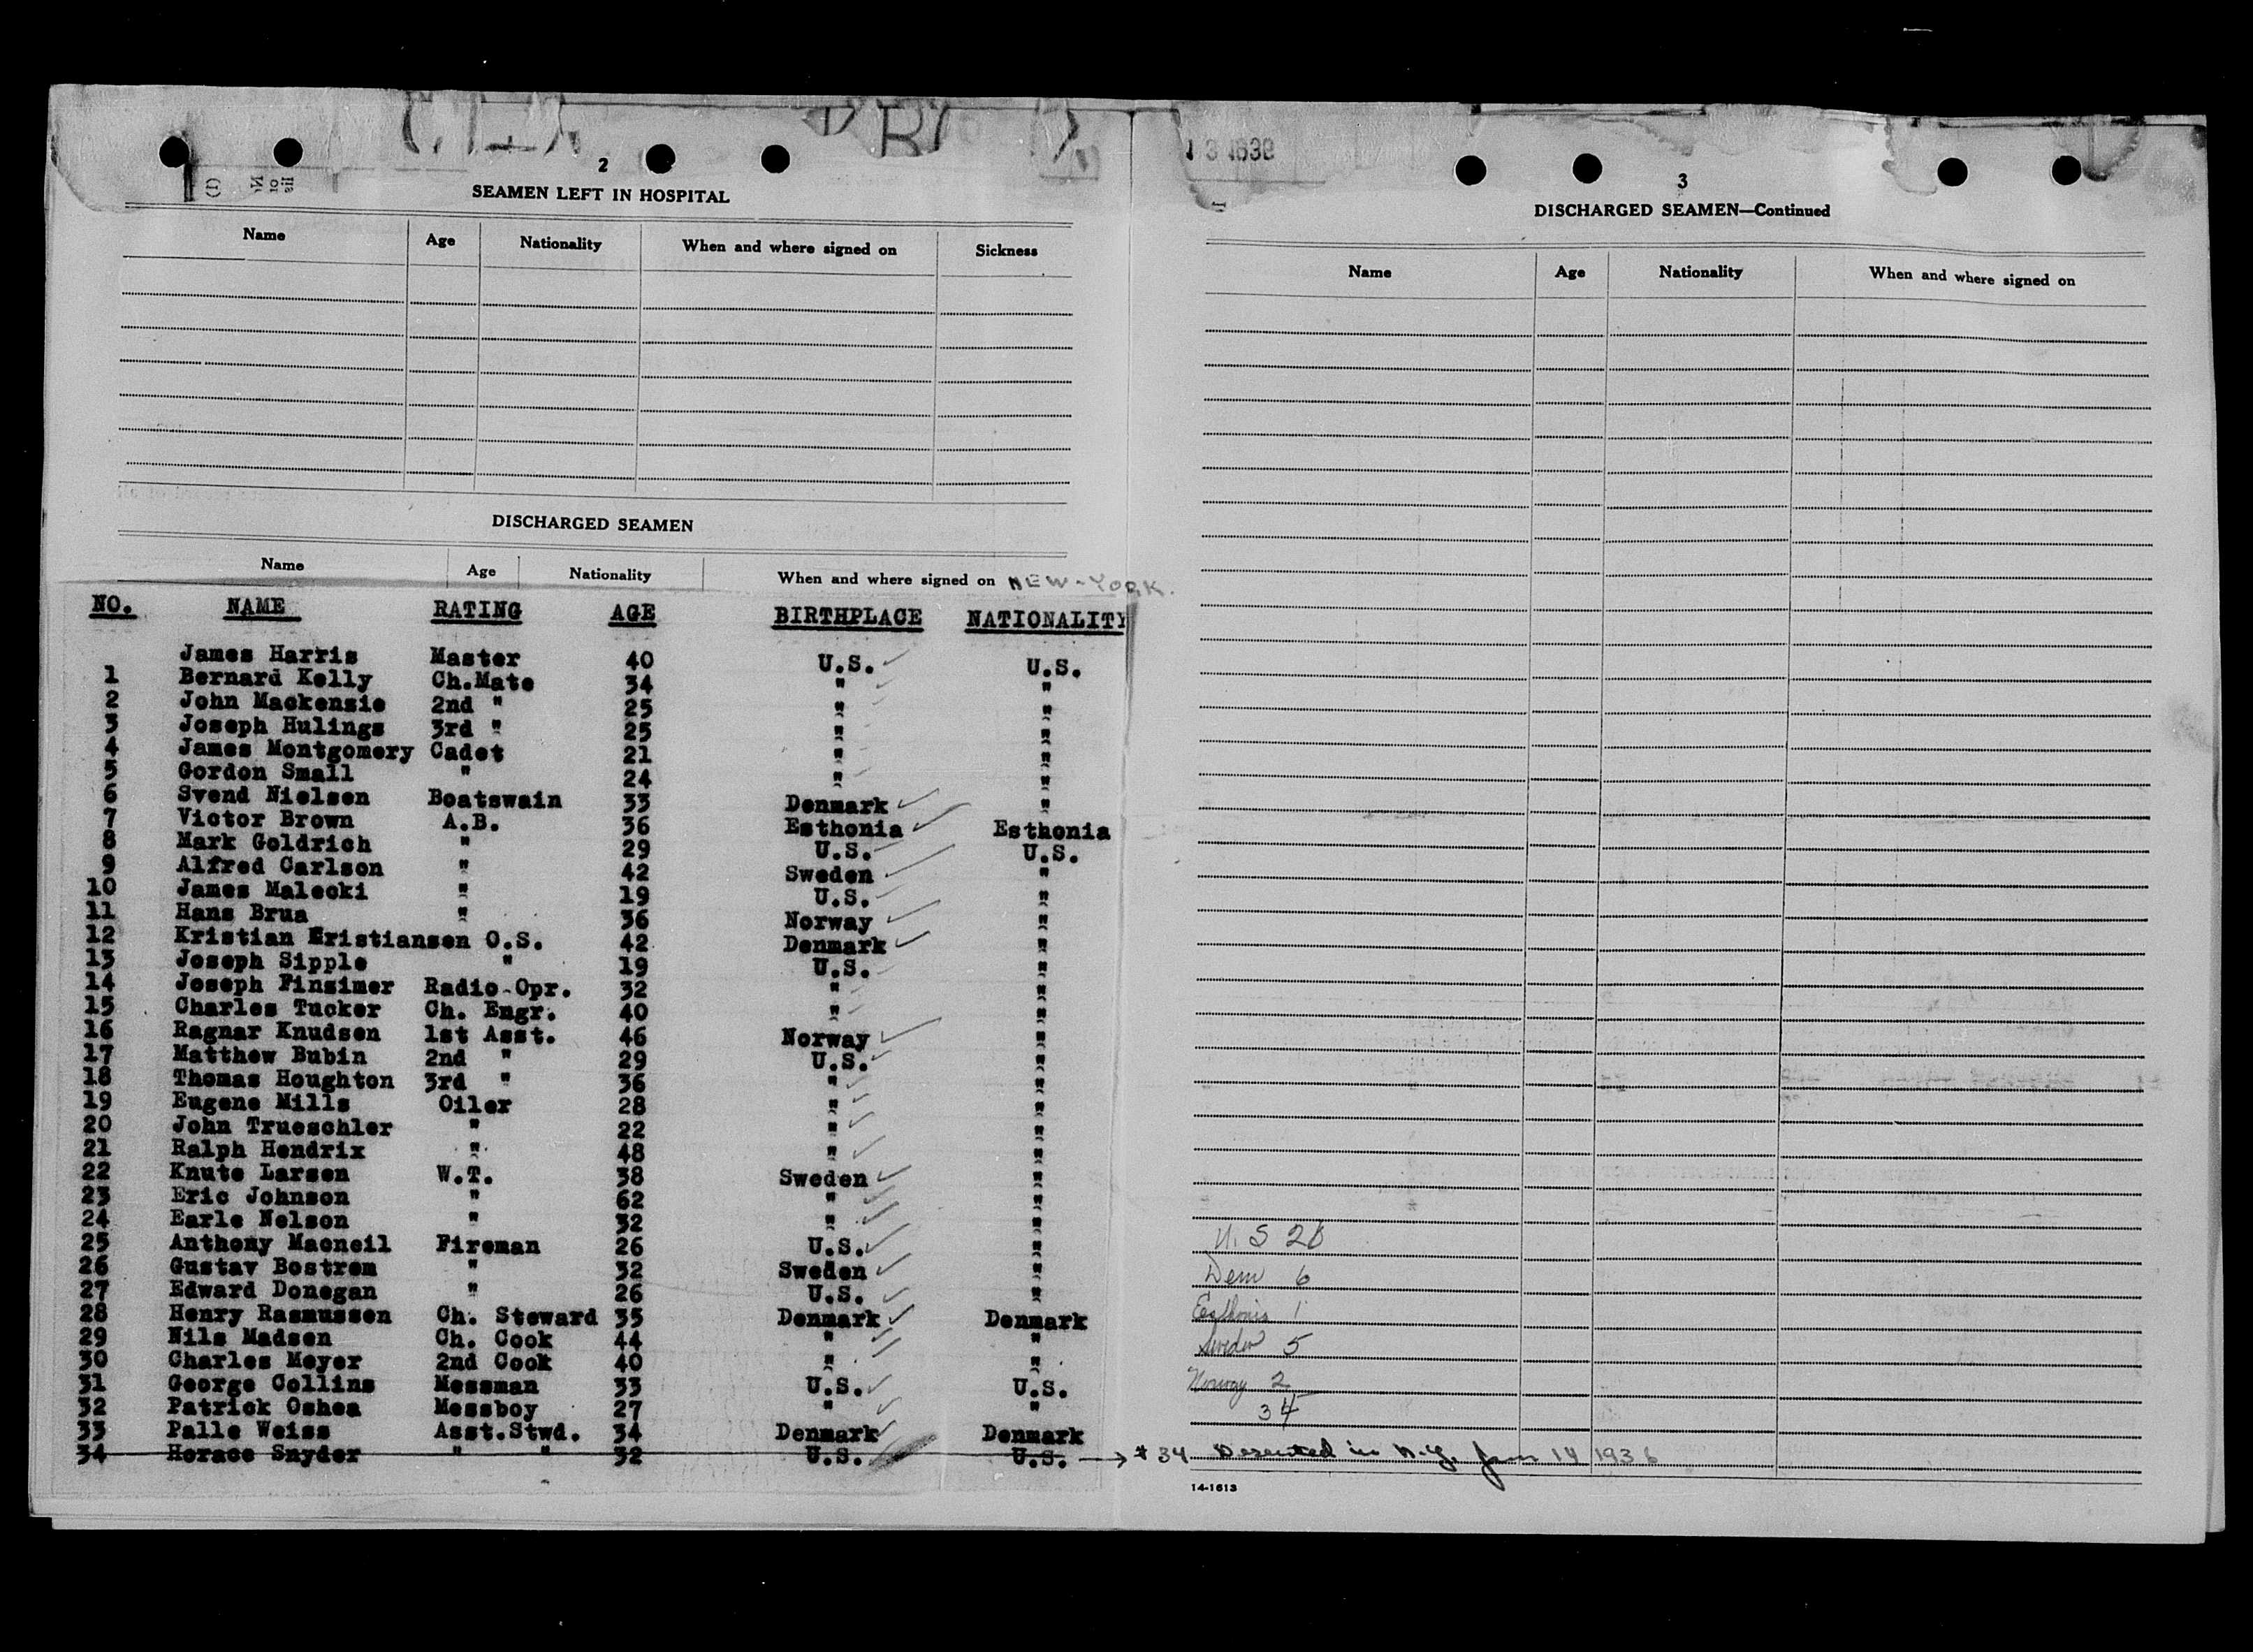 2
SEAMEN LEFT IN HOSPITAL
Name Age Nationality When and where signed on Sickness
DISCHARGED SEAMEN
Name Age Nationality When and where signed on NEW-YORK.
NO. NAME RATING AGE BIRTHPLACE NATIONALITY
James Harris Master 40 U.S. U.S.
1 Bernard Kelly Ch.Mate 34 " "
2 John Mackensie 2nd " 25 " "
3 Joseph Hulings 3rd " 25 " "
4 James Montgomery Cadet 21 " "
5 Gordon Small " 24 " "
6 Svend Nielsen Boatswain 33 Denmark "
7 Victor Brown A.B. 36 Esthonia Esthonia
8 Mark Goldrich " 29 U.S. U.S.
9 Alfred Carlson " 42 Sweden "
10 James Malecki " 19 U.S. "
11 Hans Brua " 36 Norway "
12 Kristian Kristiansen O.S. 42 Denmark "
13 Joseph Sipple " 19 U.S. "
14 Joseph Finsimer Radio-Opr. 32 " "
15 Charles Tucker Ch. Engr. 40 " "
16 Ragnar Knudsen 1st Asst. 46 Norway "
17 Matthew Bubin 2nd " 29 U.S. "
18 Thomas Houghton 3rd " 36 " "
19 Eugene Mills Oiler 28 " "
20 John Trueschler " 22 " "
21 Ralph Hendrix " 48 " "
22 Knute Larsen W.T. 38 Sweden "
23 Eric Johnson " 62 " "
24 Earle Nelson " 32 " "
25 Anthony Macneil Fireman 26 U.S. "
26 Gustav Bostrom " 32 Sweden "
27 Edward Donegan " 26 U.S. "
28 Henry Rasmussen Ch. Steward 35 Denmark Denmark
29 Nils Madsen Ch. Cook 44 " "
30 Charles Meyer 2nd Cook 40 " "
31 George Collins Messman 33 U.S. U.S.
32 Patrick Oshea Messboy 27 " "
33 Palle Weiss Asst.Stwd. 34 Denmark Denmark
34 Horace Snyder " " 32 U.S. U.S.
3
DISCHARGED SEAMEN—Continued
Name Age Nationality When and where signed on
U.S 20
Dem 6
Esthonia 1
Sweden 5
Norway 2
34
#34 Deserted in N.Y. Jan 14 1936
14-1613